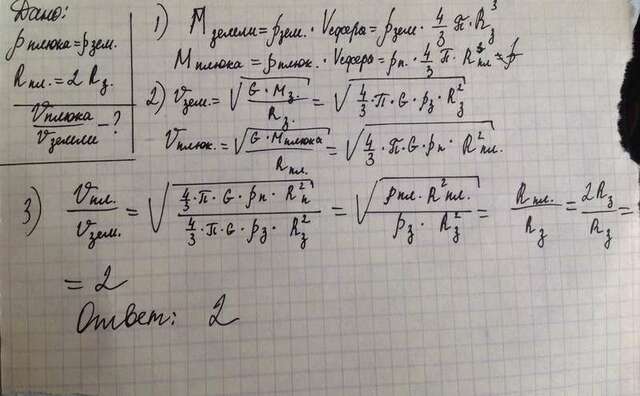 Дано:
ρ плюка = ρ зем.
R пл. = 2 R з.
V плюка / V земли - ?
1) M земли = ρ зем. · V сферы = ρ зем. · 4/3 π · R з ³
M плюка = ρ плюк. · V сферы = ρ п. · 4/3 π · R ³ пл =
2) V зем. = √(G · M з. / R з.) = √(4/3 · π · G · ρ з · R з ²)
V плюк. = √(G · M плюка / R пл.) = √(4/3 · π · G · ρ п · R ² пл.)
3) V пл. / V зем. = √(4/3 · π · G · ρ п · R п ² / 4/3 · π · G · ρ з · R з ²) = √(ρ пл. · R ² пл. / ρ з · R з ²) = R пл. / R з = 2 R з / R з =
= 2
Ответ: 2